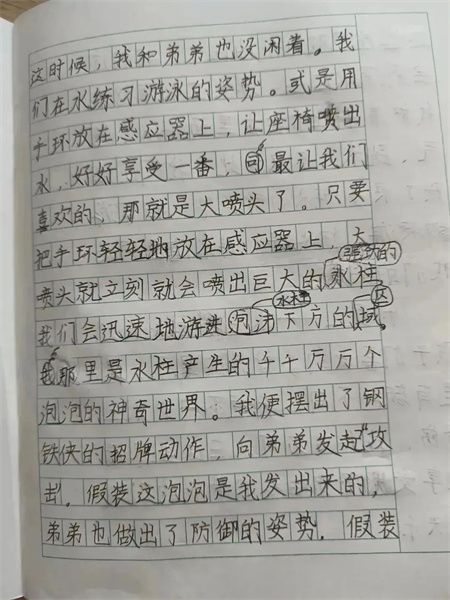 这时候，我和弟弟也没闲着。我
们在水练习游泳的姿势。或是用
手环放在感应器上，让座椅喷出
水，好好享受一番，可最让我们
喜欢的，那就是大喷头了。只要
把手环轻轻地放在感应器上，大
喷头就立刻就会喷出巨大的水柱
我们会迅速地游进泡沫下方的域。
水柱 区
我那里是水柱产生的千千万万个
泡泡的神奇世界。我便摆出了钢
铁侠的招牌动作，向弟弟发起“攻
击，假装这泡泡是我发出来的，
弟弟也做出了防御的姿势，假装